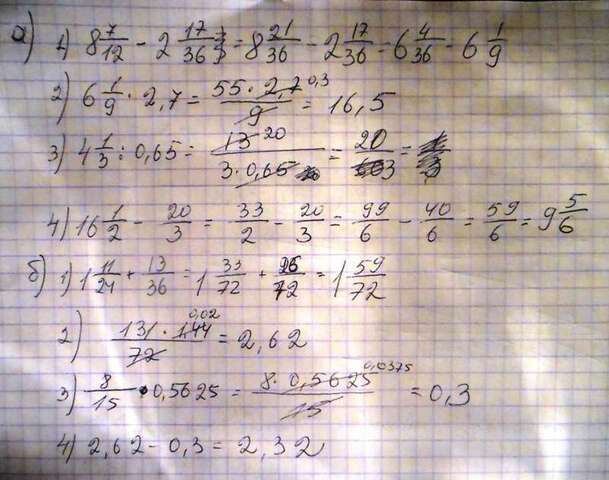 а) 1) 8 7/12 - 2 17/36 = 8 21/36 - 2 17/36 = 6 4/36 - 6 1/9
2) 6 1/9 · 2,7 = 55 · 2,7 0,3 / 9 = 16,5
3) 4 1/3 : 0,65 = 13 20 / 3 · 0,65 = 20/3 =
4) 16 1/2 - 20/3 = 33/2 - 20/3 = 99/6 - 40/6 = 59/6 = 9 5/6
б) 1) 1 11/24 + 13/36 = 1 33/72 + 26/72 = 1 59/72
2) 131 · 1,44 0,02 / 72 = 2,62
3) 8/15 · 0,5625 = 8 · 0,5625 0,0375 / 15 = 0,3
4) 2,62 - 0,3 = 2,32